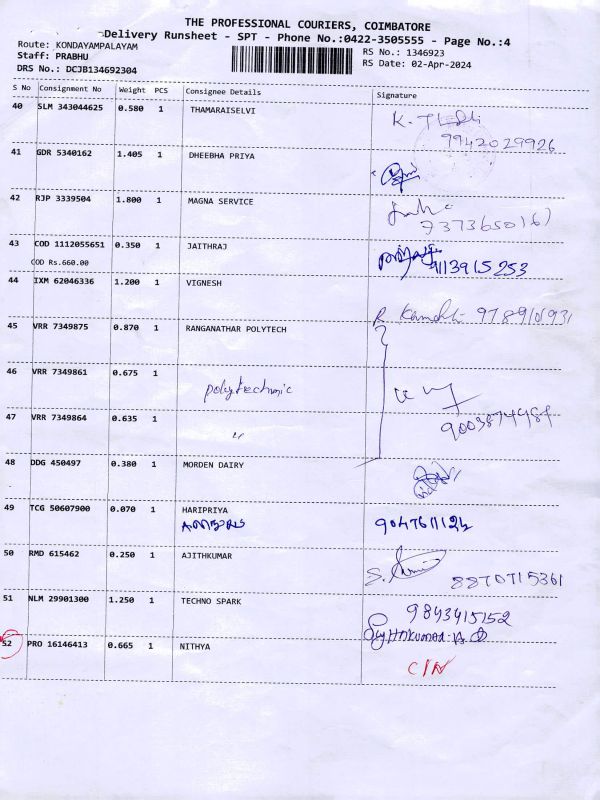 THE PROFESSIONAL COURIERS, COIMBATORE
Delivery Runsheet - SPT - Phone No.:0422-3505555 - Page No.:4
Route: KONDAYAMPALAYAM
Staff: PRABHU
DRS No.: DCJB134692304
RS No.: 1346923
RS Date: 02-Apr-2024
S No Consignment No Weight PCS Consignee Details Signature
40 SLM 343044625 0.580 1 THAMARAISELVI
9942029926
41 GDR 5340162 1.405 1 DHEEBHA PRIYA
42 RJP 3339504 1.800 1 MAGNA SERVICE
43 COD 1112055651 0.350 1 JAITHRAJ
COD Rs.660.00
9113915253
44 IXM 62046336 1.200 1 VIGNESH
45 VRR 7349875 0.870 1 RANGANATHAR POLYTECH
46 VRR 7349861 0.675 1
polytechnic
47 VRR 7349864 0.635 1
〃
48 DDG 450497 0.380 1 MORDEN DAIRY
49 TCG 50607900 0.070 1 HARIPRIYA
50 RMD 615462 0.250 1 AJITHKUMAR
8870715361
51 NLM 29901300 1.250 1 TECHNO SPARK
9843415152
52 PRO 16146413 0.665 1 NITHYA
C/N